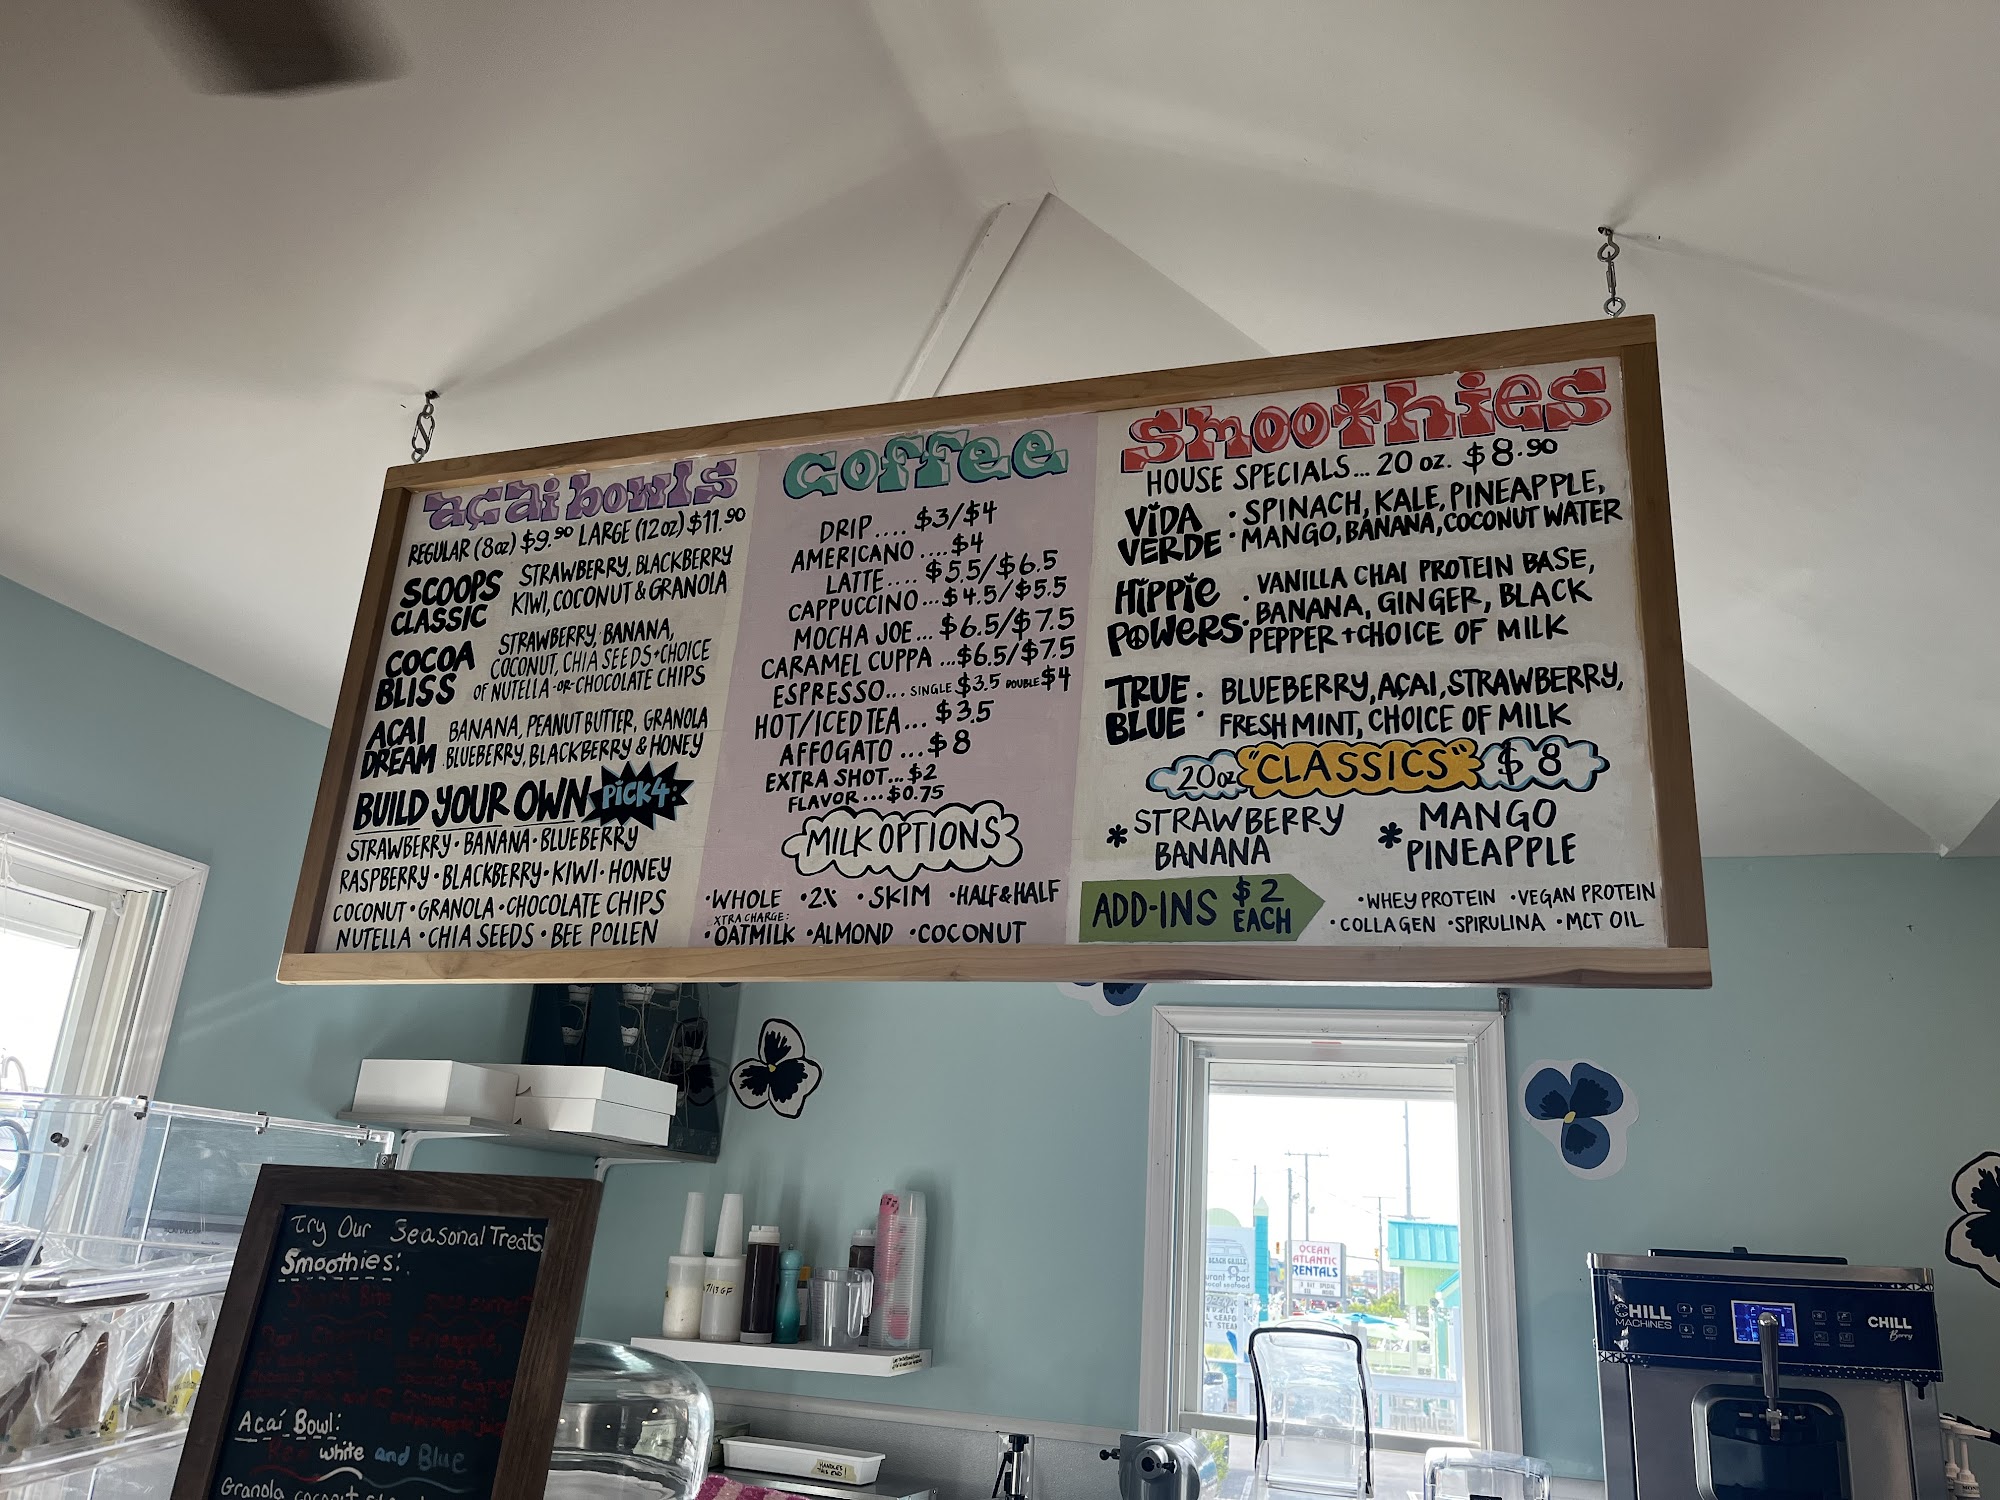 açai bowls
REGULAR (8oz) $9.90 LARGE (12oz) $11.90
SCOOPS CLASSIC
STRAWBERRY, BLACKBERRY
KIWI, COCONUT & GRANOLA
COCOA BLISS
STRAWBERRY, BANANA,
COCONUT, CHIA SEEDS + CHOICE
OF NUTELLA -OR- CHOCOLATE CHIPS
ACAI DREAM
BANANA, PEANUT BUTTER, GRANOLA
BLUEBERRY, BLACKBERRY & HONEY
BUILD YOUR OWN PICK 4:
STRAWBERRY • BANANA • BLUEBERRY
RASPBERRY • BLACKBERRY • KIWI • HONEY
COCONUT • GRANOLA • CHOCOLATE CHIPS
NUTELLA • CHIA SEEDS • BEE POLLEN
coffee
DRIP.... $3/$4
AMERICANO .... $4
LATTE.... $5.5/$6.5
CAPPUCCINO ... $4.5/$5.5
MOCHA JOE... $6.5/$7.5
CARAMEL CUPPA ...$6.5/$7.5
ESPRESSO... SINGLE $3.5 DOUBLE $4
HOT/ICED TEA... $3.5
AFFOGATO ...$8
EXTRA SHOT... $2
FLAVOR ... $0.75
MILK OPTIONS
•WHOLE •2% •SKIM •HALF & HALF
XTRA CHARGE:
•OATMILK •ALMOND •COCONUT
Smoothies
HOUSE SPECIALS... 20 oz. $8.90
VIDA VERDE
• SPINACH, KALE, PINEAPPLE,
• MANGO, BANANA, COCONUT WATER
HIPPIE POWERS
• VANILLA CHAI PROTEIN BASE,
BANANA, GINGER, BLACK
• PEPPER + CHOICE OF MILK
TRUE BLUE
• BLUEBERRY, AÇAI, STRAWBERRY,
• FRESH MINT, CHOICE OF MILK
20oz "CLASSICS" $8
* STRAWBERRY
BANANA
* MANGO
PINEAPPLE
ADD-INS $2 EACH
•WHEY PROTEIN •VEGAN PROTEIN
•COLLAGEN •SPIRULINA •MCT OIL
Try Our Seasonal Treats!
Smoothies:
Shark Bite
Pineapple,
Açaí Bowl:
Red white and Blue
Granola coconut
7/13 GF
HANDLES THIS END!
BEACH GRILLE
OCEAN
ATLANTIC
RENTALS
CHILL
MACHINES
CHILL
Berry